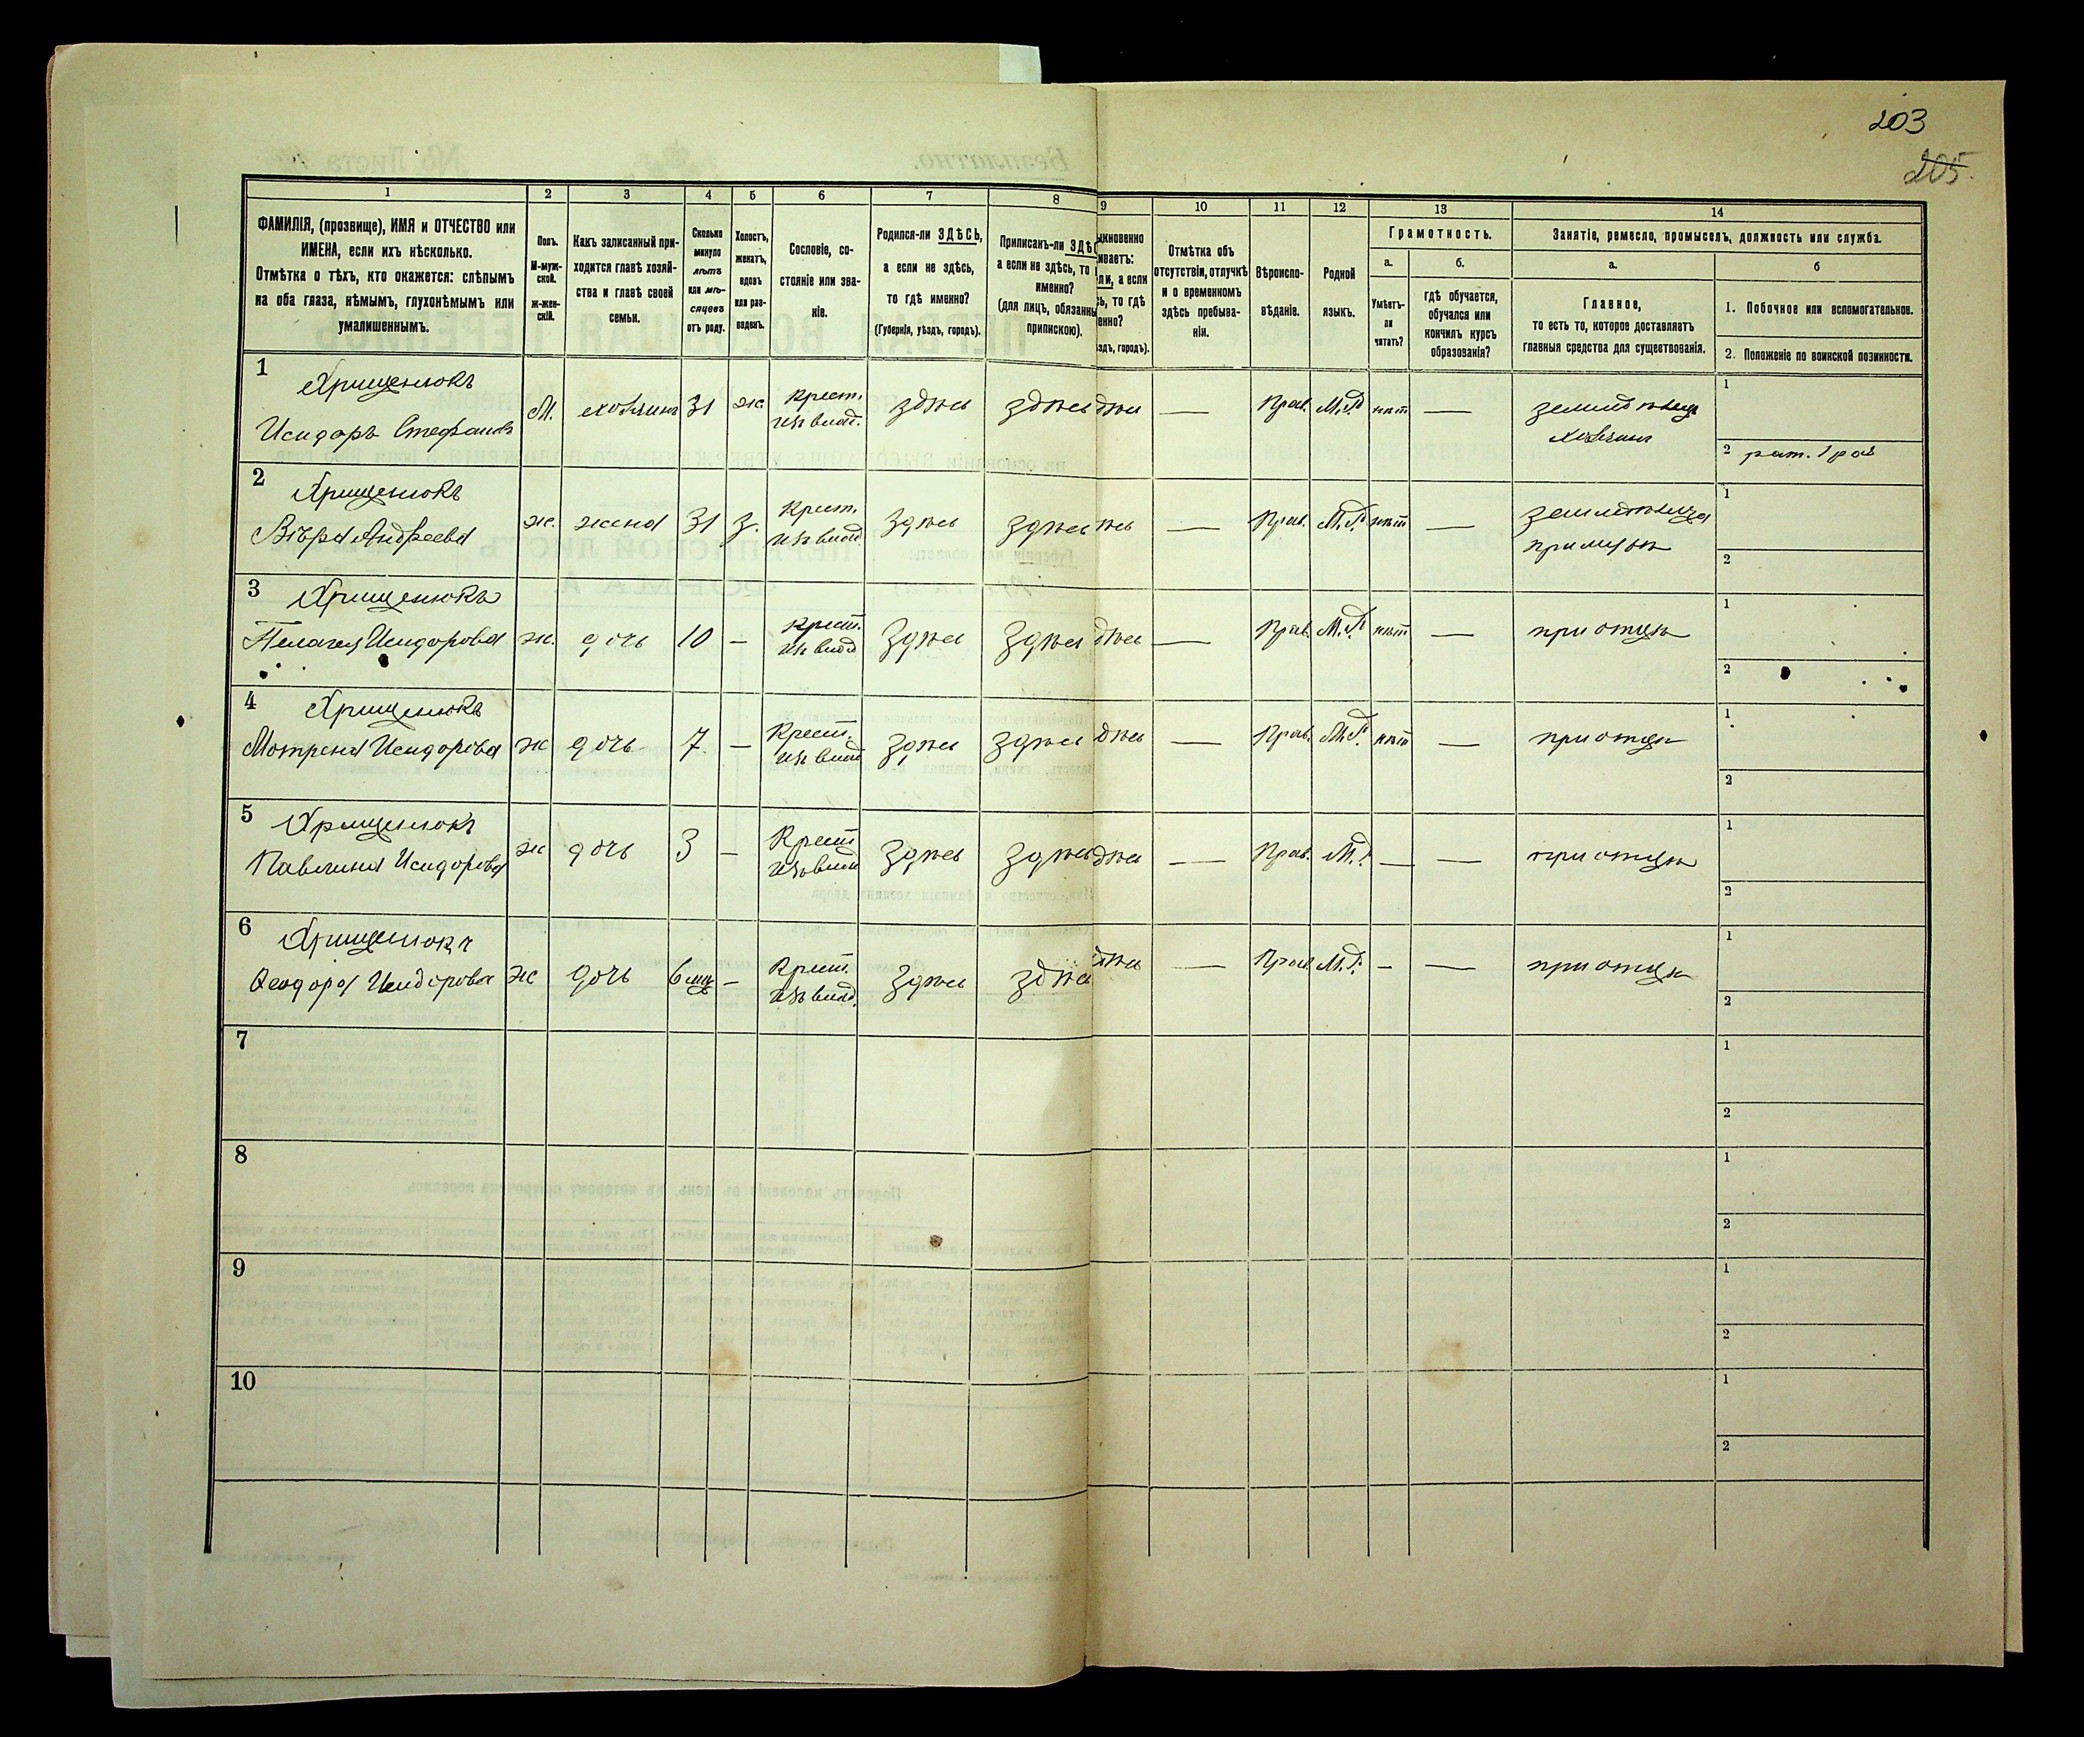 203
205.
1
2
3
4
5
6
7
8
9
10
11
12
13
14
ФАМИЛІЯ, (прозвище), ИМЯ и ОТЧЕСТВО или
ИМЕНА, если ихъ нѣсколько.
Отмѣтка о тѣхъ, кто окажется: слѣпымъ
на оба глаза, нѣмымъ, глухонѣмымъ или
умалишеннымъ.
Полъ.
М-муж-
ской.
Ж-жен-
скій.
Какъ записанный при-
ходится главѣ хозяй-
ства и главѣ своей
семьи.
Сколько
минуло
лѣтъ
или мѣ-
сяцевъ
отъ роду.
Холостъ,
женатъ,
вдовъ
или раз-
веденъ.
Сословіе, со-
стояніе или зва-
ніе.
Родился-ли ЗДѢСЬ,
а если не здѣсь,
то гдѣ именно?
(Губернія, уѣздъ, городъ).
Приписанъ-ли ЗДѢС
а если не здѣсь, то
именно?
(для лицъ, обязанны
припискою).
ыкновенно
иваетъ:
ли, а если
ь, то гдѣ
енно?
здъ, городъ).
Отмѣтка объ
отсутствіи, отлучкѣ
и о временномъ
здѣсь пребыва-
ніи.
Вѣроиспо-
вѣданіе.
Родной
языкъ.
Грамотность.
а.
Умѣетъ-
ли
читать?
б.
гдѣ обучается,
обучался или
кончилъ курсъ
образованія?
Занятіе, ремесло, промыселъ, должность или служба.
а.
Главное,
то есть то, которое доставляетъ
главныя средства для существованія.
б
1. Побочное или вспомогательное.
2. Положеніе по воинской повинности.
1
Хрищенюкъ
Исидоръ Стефановъ
М. хозяинъ 31 ж. Крест. изъ влад. здѣсь здѣсь дѣсь — Прав. М.Р. нѣт — земледѣлец хозяинъ
1
2 рат. 1 раз
2
Хрищенюкъ
Вѣра Андреева
ж. жена 31 з. Крест. изъ влад. здѣсь здѣсь ѣсь — Прав. М.Р. нѣт — земледѣлица при мужѣ
1
2
3
Хрищенюкъ
Пелагея Исидорова
ж. дочь 10 — крест. изъ влад здѣсь здѣсь дѣсь — Прав. М.Р. нѣт — при отцѣ
1
2
4
Хрищенюкъ
Мотрона Исидорова
ж дочь 7. — Крест. изъ влад здѣсь здѣсь дѣсь — Прав. М.Р. нѣт — при отцѣ
1
2
5
Хрищенюкъ
Павлина Исидорова
ж дочь 3 — Крест изъ влад здѣсь здѣсь дѣсь — Прав. М.Р. — — при отцѣ
1
2
6
Хрищенюкъ
Ѳеодора Исидорова
ж дочь 6 мц — Крест. изъ влад. здѣсь здѣсь дѣсь — Прав. М.Р. — — при отцѣ
1
2
7
1
2
8
1
2
9
1
2
10
1
2